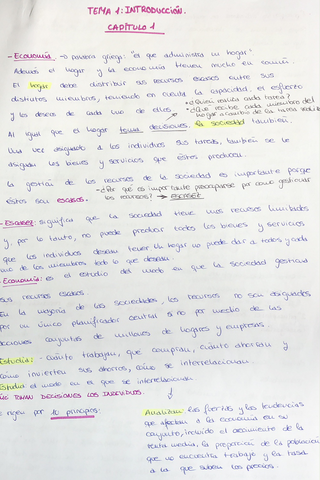 TEMA 1: INTRODUCCIÓN.
CAPÍTULO 1
- Economía → palabra griega: "el que administra un hogar"
Además el hogar y la economía tienen mucho en común.
El hogar debe distribuir sus recursos escasos entre sus
distintos miembros, teniendo en cuenta la capacidad, el esfuerzo
y los deseos de cada uno de ellos
• ¿Quién realiza cada tarea?
• ¿Qué recibe cada miembro del hogar a cambio de la tarea
Al igual que el hogar toma decisiones, la sociedad también.
Una vez asignado a los individuos sus tareas, también se le
asignan los bienes y servicios que éstos producen.
La gestión de los recursos de la sociedad es importante porque
éstos son escasos.
• ¿Por qué es importante preocuparse por como gestionar
los recursos? → escasez
- Escasez: significa que la sociedad tiene unos recursos limitados
y, por lo tanto, no puede producir todos los bienes y servicios
que los individuos desean tener. Un hogar no puede dar a todos y cada
uno de los miembros todo lo que desean.
- Economía: es el estudio del modo en que la sociedad gestiona
sus recursos escasos
En la mayoría de las sociedades, los recursos no son asignados
por un único planificador central si no por medio de las
acciones conjuntas de millones de hogares y empresas.
Estudia: - cuánto trabajan, qué compran, cuánto ahorran y
como invierten sus ahorros, cómo se interrelacionan.
Estudia el modo en el que se interrelacionan
TOMAN DECISIONES LOS INDIVIDUOS.
rigen por 10 principios.
Analizan: las fuerzas y las tendencias
que afectan a la economía en su
conjunto, incluido el crecimiento de la
renta media, la proporción de la población
que no encuentra trabajo y la tasa
a la que suben los precios.